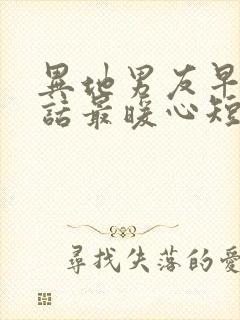 異地男友早
話最暖心短
尋找失落的愛